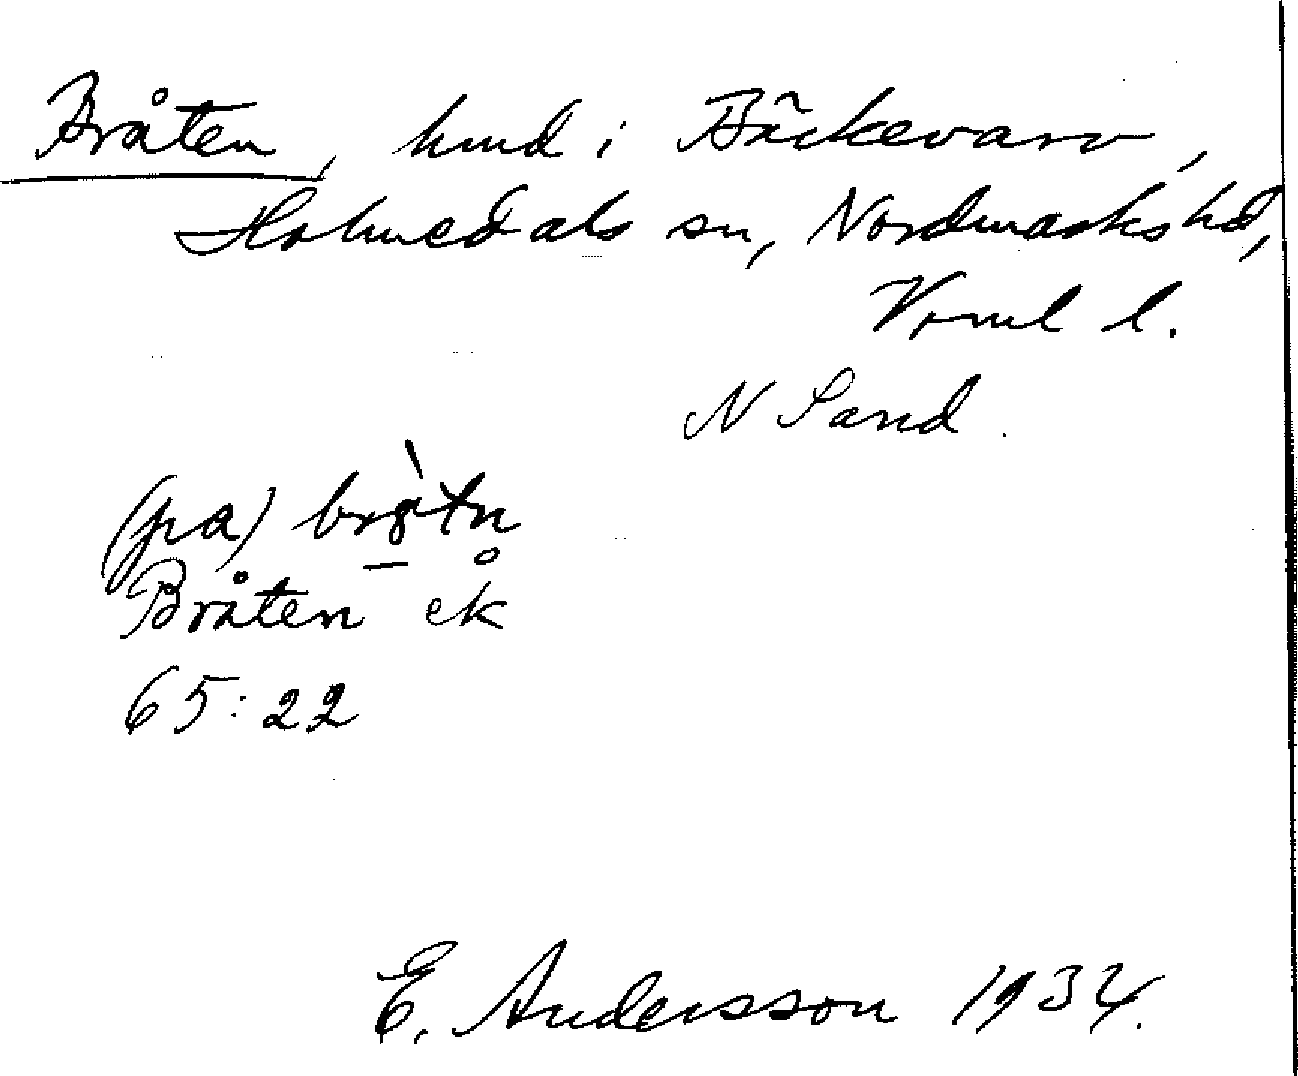 Bråten, hmd i Bäckevarv,
Holmedals sn, Nordmarks hd,
Vrml l.
N Sand.
(på)
Bråten ek
65:22
E. Andersson 1934.